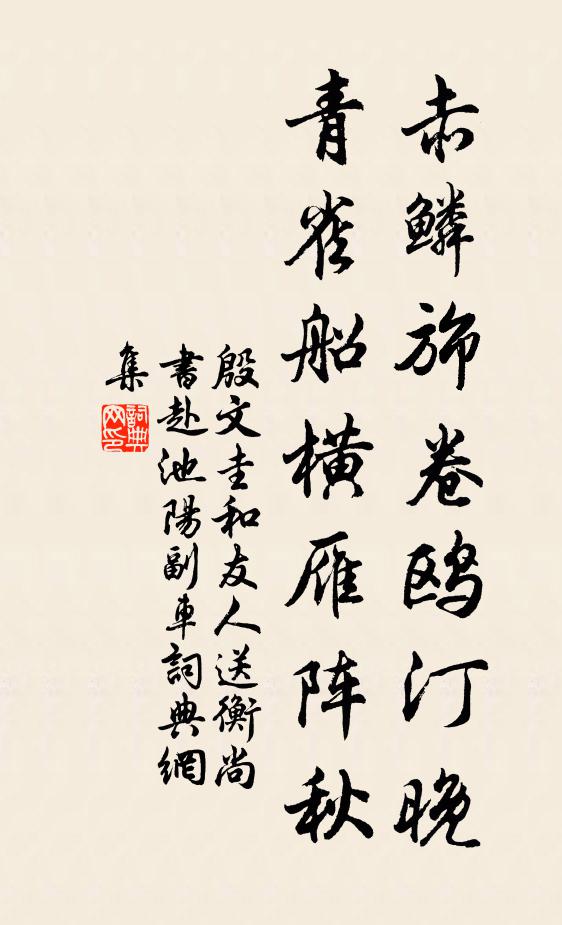 赤鳞旆卷鸥汀晚
青雀船横雁阵秋
殷文圭和友人送衡尚
書赴池陽副車詞典網
集
詞典网印